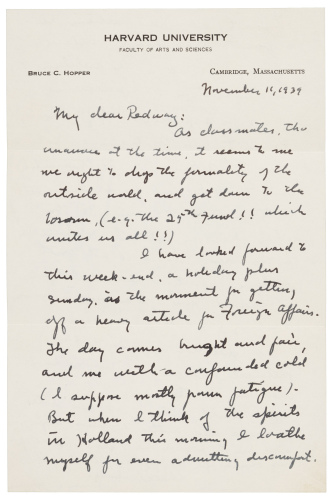 HARVARD UNIVERSITY
FACULTY OF ARTS AND SCIENCES
BRUCE C. HOPPER
CAMBRIDGE, MASSACHUSETTS
November 11, 1939
My dear Redway:
As classmates, tho
unaware at the time, it seems to me
we ought to drop the formality of the
outside world, and get down to the
bosom, (e.g. the 25th Fund!! which
unites us all!!)
I have looked forward to
this week-end, a holiday plus
Sunday, as the moment for getting
off a heavy article for Foreign Affairs.
The day comes bright and fair,
and me with a confounded cold
(I suppose mostly from fatigue).
But when I think of the spirits
in Holland this morning I loathe
myself for even admitting discomfort.